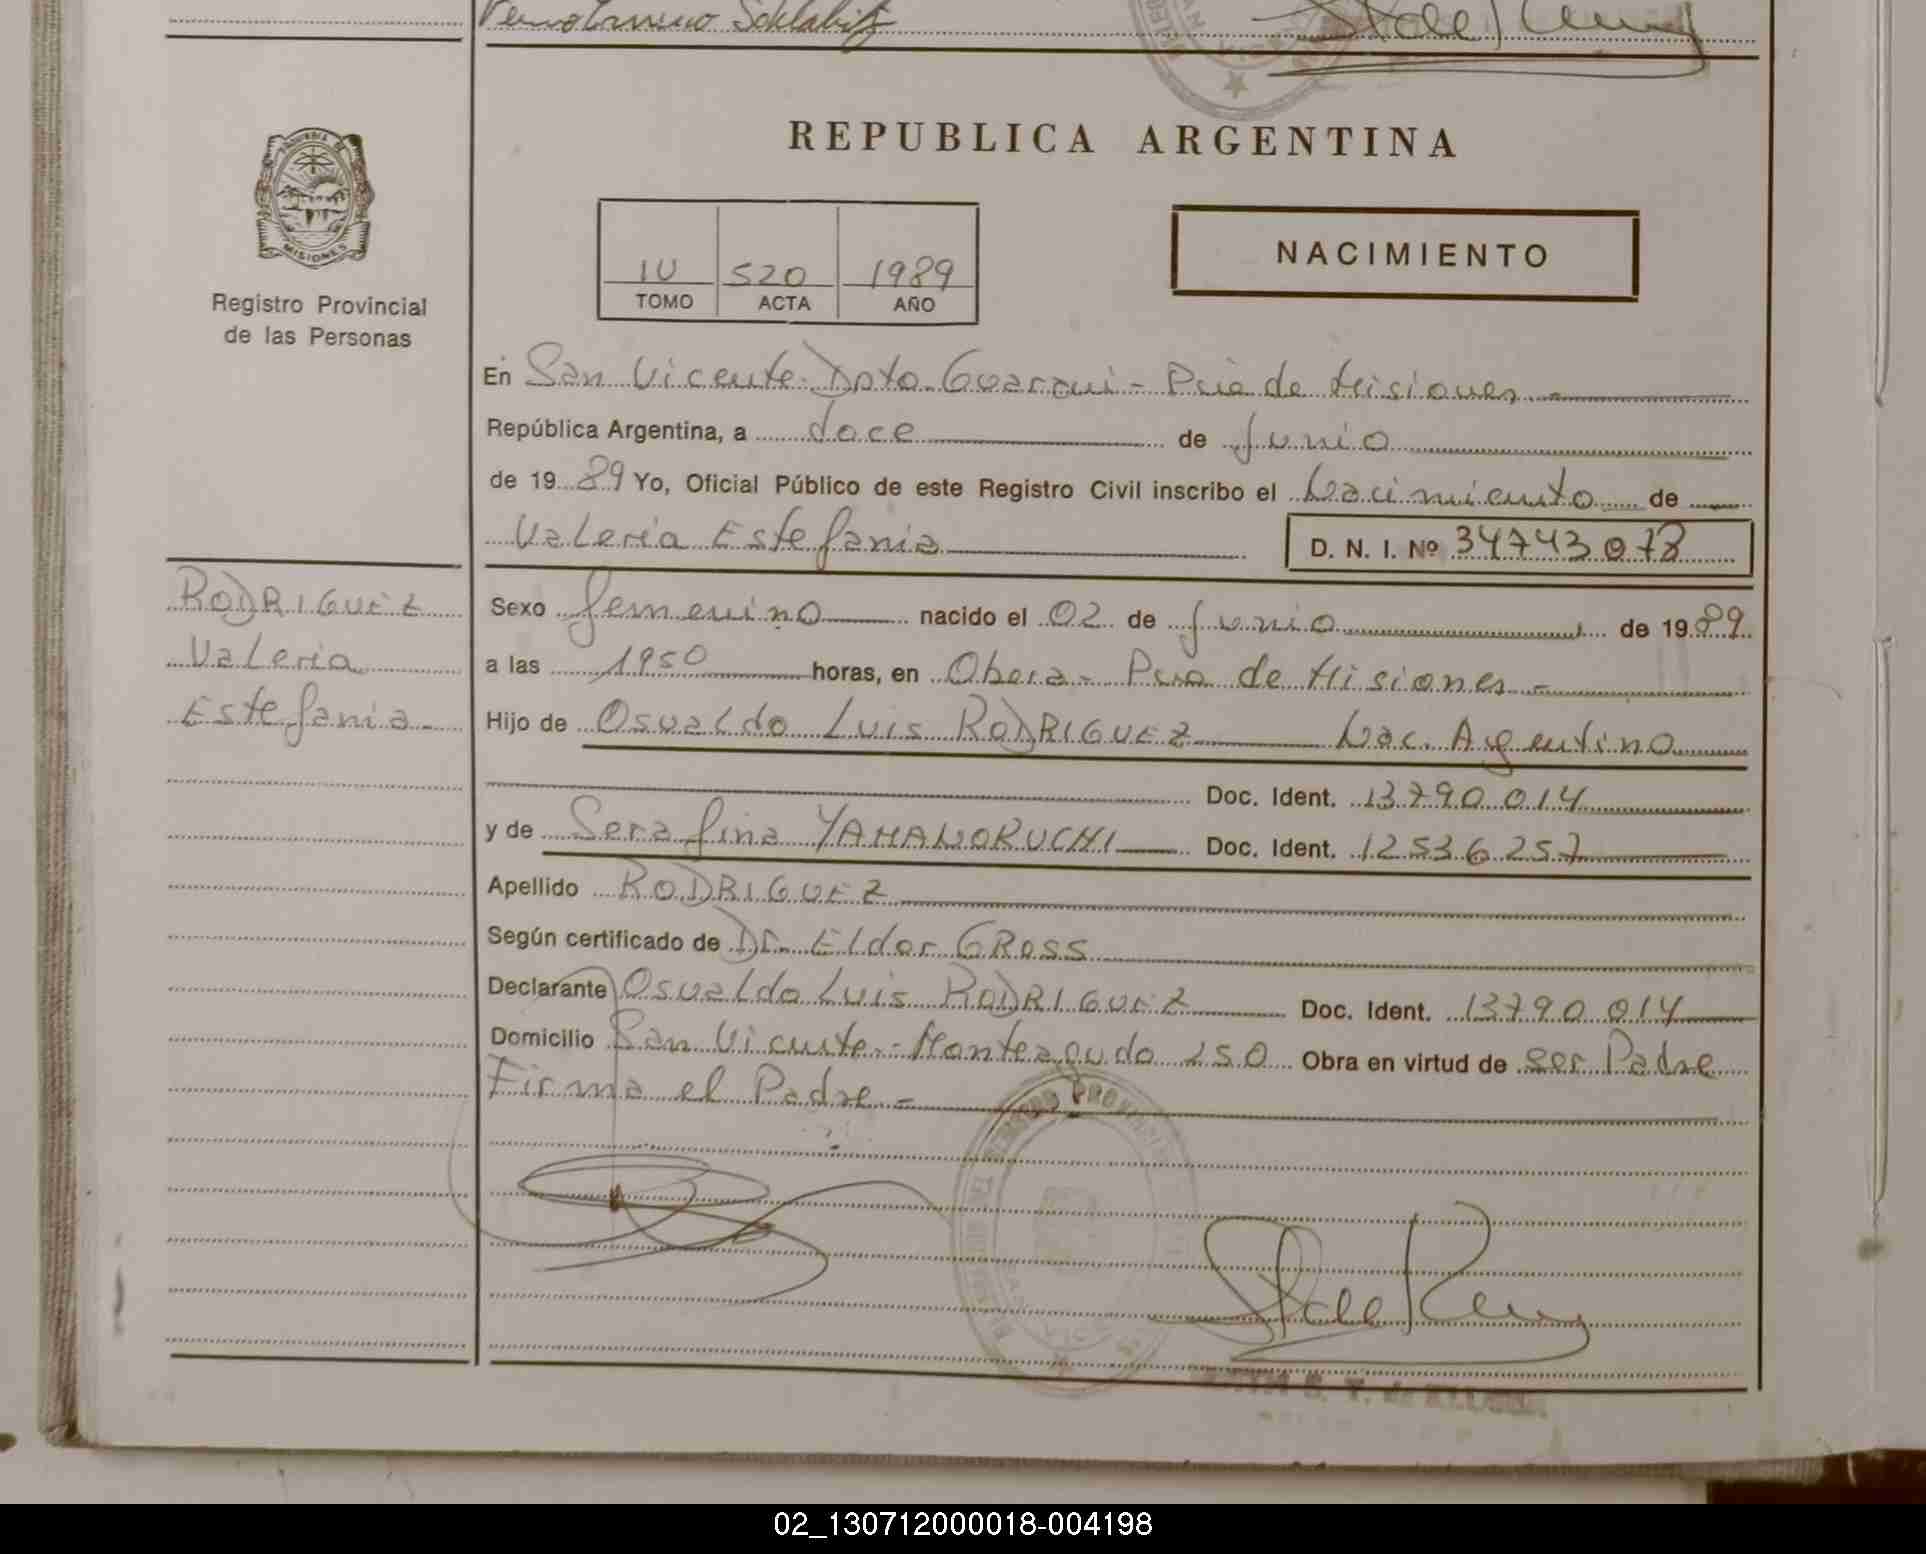 REPUBLICA ARGENTINA
MISIONES
Registro Provincial
de las Personas
IV 520 1989
TOMO ACTA AÑO
NACIMIENTO
En San Vicente - Dpto Guarani - Pcia de Misiones -
República Argentina, a doce de Junio
de 1989 Yo, Oficial Público de este Registro Civil inscribo el Nacimiento de
Valeria Estefania D. N. I. Nº 34743078
RODRIGUEZ
Valeria
Estefania
Sexo femenino nacido el 02 de Junio de 1989
a las 1950 horas, en Obera - Pcia de Misiones -
Hijo de Osvaldo Luis RODRIGUEZ Nac. Argentino
Doc. Ident. 13790014
y de Serafina YAMANORUCHI Doc. Ident. 12536257
Apellido RODRIGUEZ
Según certificado de Dr. Eldor GROSS
Declarante Osvaldo Luis RODRIGUEZ Doc. Ident. 13790014
Domicilio San Vicente - Monteagudo 250 Obra en virtud de ser Padre
Firma el Padre -
02_130712000018-004198